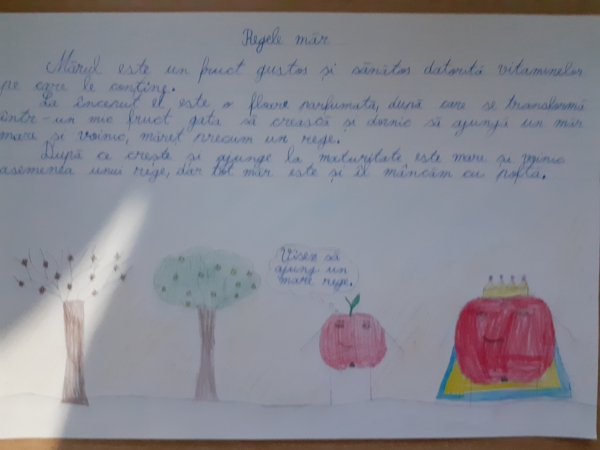 Regele măr
Mărul este un fruct gustos și sănătos datorită vitaminelor
pe care le conține.
La început el este o floare parfumată, după care se transformă
într-un mic fruct gata să crească și dornic să ajungă un măr
mare și voinic, măreț precum un rege.
După ce crește și ajunge la maturitate este mare și voinic
asemenea unui rege, dar tot măr este și îl mâncăm cu poftă.
Visez să
ajung un
mare rege.